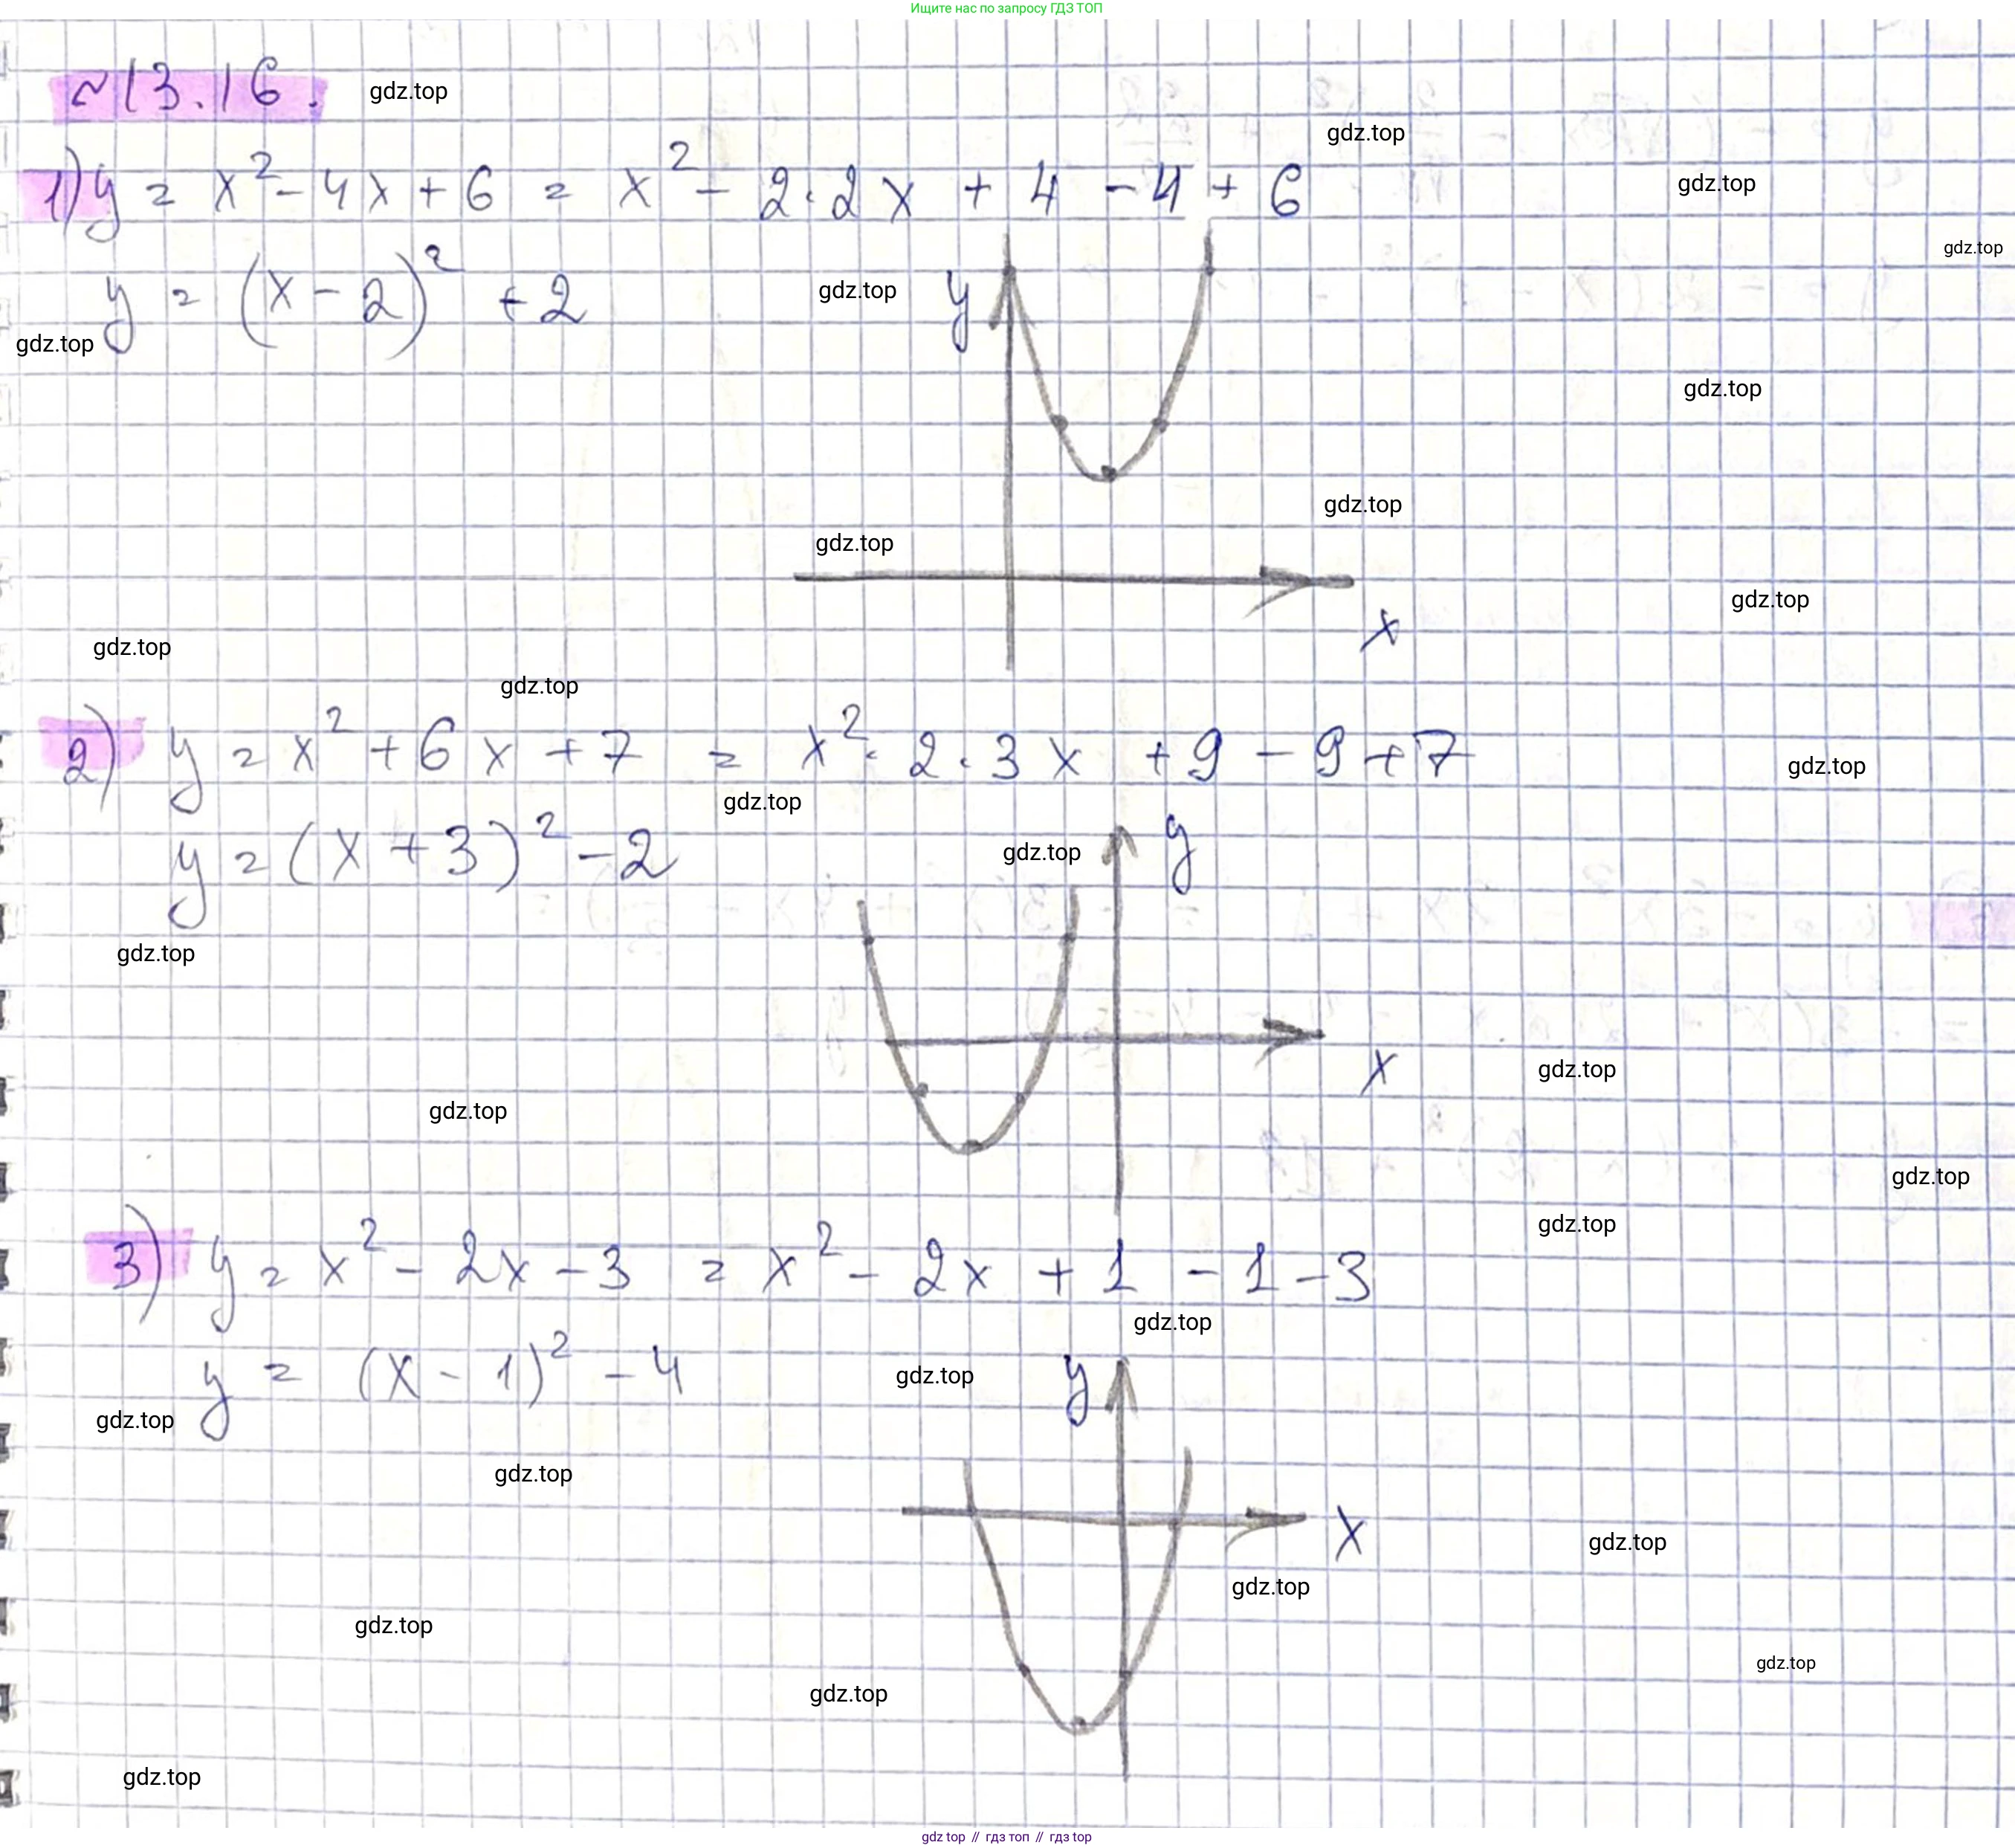 Ищите нас по запросу ГДЗ ТОП
№13.16.
gdz.top
gdz.top
1) y = x² - 4x + 6 = x² - 2·2x + 4 - 4 + 6
gdz.top
gdz.top
y = (x - 2)² + 2
gdz.top
y
gdz.top
gdz.top
gdz.top
gdz.top
gdz.top
x
gdz.top
gdz.top
2) y = x² + 6x + 7 = x² · 2·3x + 9 - 9 + 7
gdz.top
gdz.top
y = (x + 3)² - 2
gdz.top
y
gdz.top
x
gdz.top
gdz.top
gdz.top
gdz.top
3) y = x² - 2x - 3 = x² - 2x + 1 - 1 - 3
gdz.top
y = (x - 1)² - 4
gdz.top
y
gdz.top
gdz.top
x
gdz.top
gdz.top
gdz.top
gdz.top
gdz.top
gdz.top
gdz top // гдз топ // gdz top